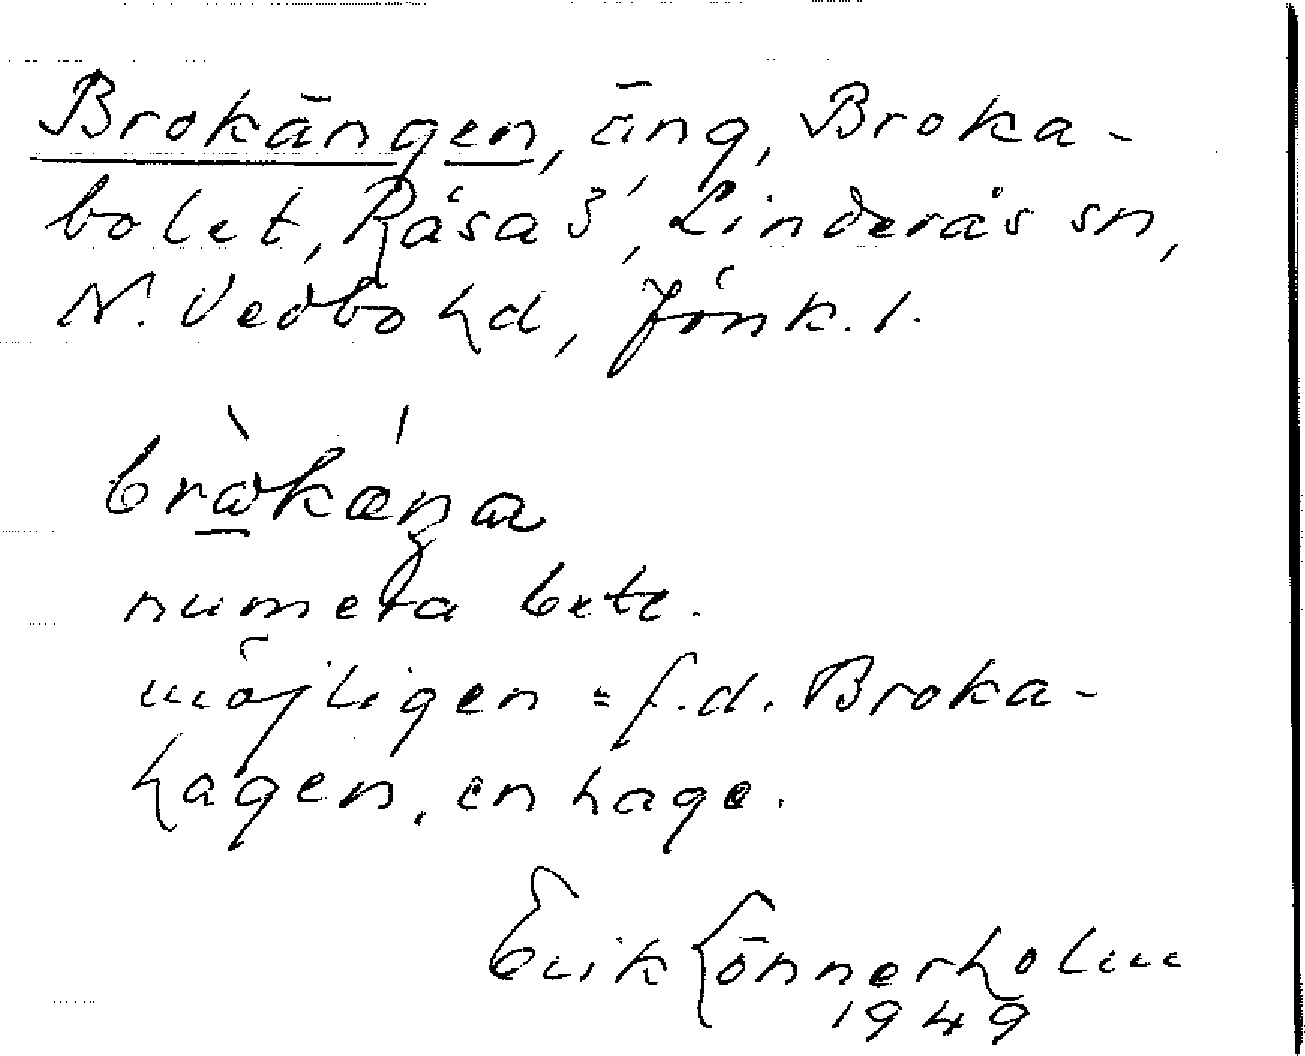 Brokängen, äng, Broka-
bolet, Råsa 3, Linderås sn,
N. Vedbo hd, Jönk. l.
numera bete.
möjligen = f.d. Broka-
hagen, en hage.
Erik Lönnerholm
1949